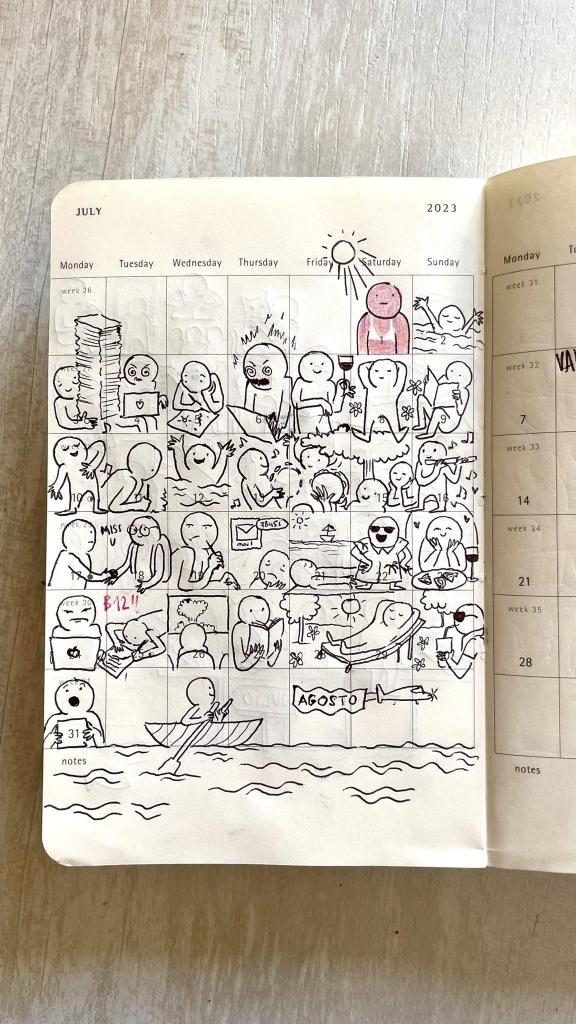 JULY 2023
Monday Tuesday Wednesday Thursday Friday Saturday Sunday
week 26
1 2
6
10 12 15 16
MISS
U
mail
17 18 19 20 21 22
week 30
B12!!
26
AGOSTO
31
notes
2023
Monday
week 31
week 32
7
week 33
14
week 34
21
week 35
28
notes